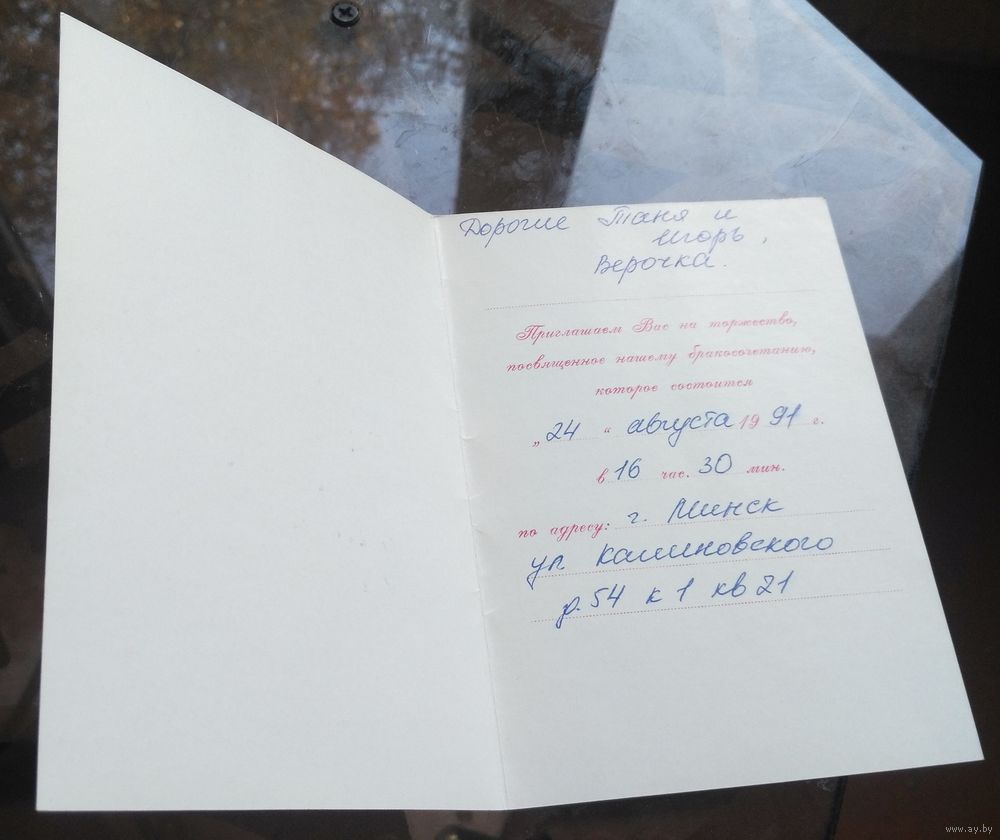 Дорогие Таня и
Игорь,
Верочка.
Приглашаем Вас на торжество,
посвященное нашему бракосочетанию,
которое состоится
„24“ августа 1991 г.
в 16 час. 30 мин.
по адресу: г. Минск
ул Калиновского
д. 54 к 1 кв 21
www.ay.by